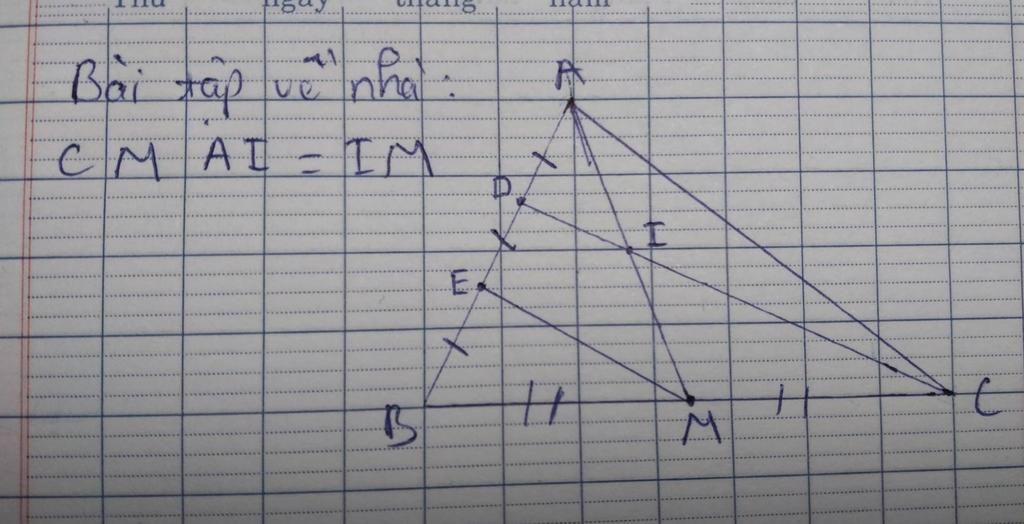 Thứ ngày tháng năm
Bài tập về nhà:
A
CM AI = IM
D
I
E
B
M
C